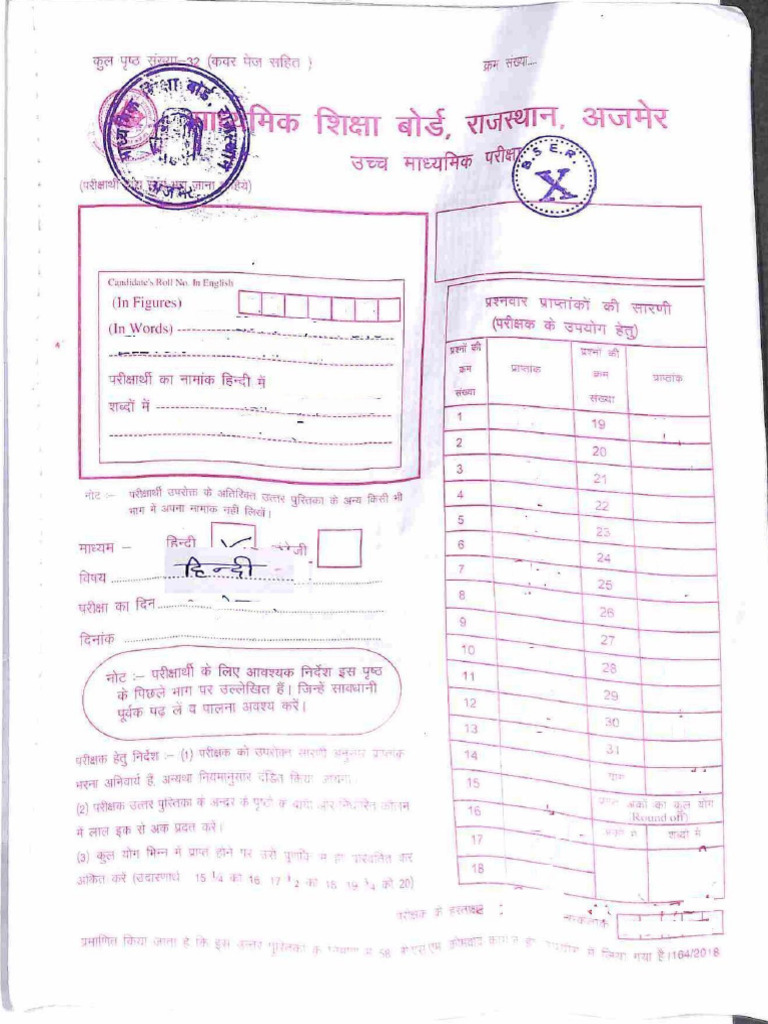 कुल पृष्ठ संख्या-32 (कवर पेज सहित )
क्रम संख्या....
माध्यमिक शिक्षा बोर्ड, राजस्थान, अजमेर
उच्च माध्यमिक परीक्षा
B S E R.
X
Candidate's Roll No. In English
(In Figures)
(In Words)
परीक्षार्थी का नामांक हिन्दी में
शब्दों में
नोट :- परीक्षार्थी उपरोक्त के अतिरिक्त उत्तर पुस्तिका के अन्य किसी भी
भाग में अपना नामांक नहीं लिखें।
माध्यम - हिन्दी
विषय हिन्दी
परीक्षा का दिन
दिनांक
नोट :- परीक्षार्थी के लिए आवश्यक निर्देश इस पृष्ठ
के पिछले भाग पर उल्लेखित हैं। जिन्हें सावधानी
पूर्वक पढ़ लें व पालना अवश्य करें।
परीक्षक हेतु निर्देश :- (1) परीक्षक को उपरोक्त सारणी अनुसार प्राप्तांक
भरना अनिवार्य है, अन्यथा नियमानुसार दंडित किया
(2) परीक्षक उत्तर पुस्तिका के अन्दर के पृष्ठों के
में लाल इंक से अंक प्रदत करें।
(3) कुल योग भिन्न में प्राप्त होने पर उसे
अंकित करें (उदाहरणार्थ 15 1/4 को 16, 17 1/2 को 18, 19 1/4 को 20)
प्रश्नवार प्राप्तांकों की सारणी
(परीक्षक के उपयोग हेतु)
प्रश्नों की क्रम संख्या
प्राप्तांक
प्रश्नों की क्रम संख्या
प्राप्तांक
1 19
2 20
3 21
4 22
5 23
6 24
7 25
8 26
9 27
10 28
11 29
12 30
13 31
14 योग
15
16
अंकों का कुल योग
Round off)
17 शब्दों में
18
परीक्षक के हस्ताक्षर
प्रमाणित किया जाता है कि इस उत्तर पुस्तिका के 58 में लिया गया है।164/2018